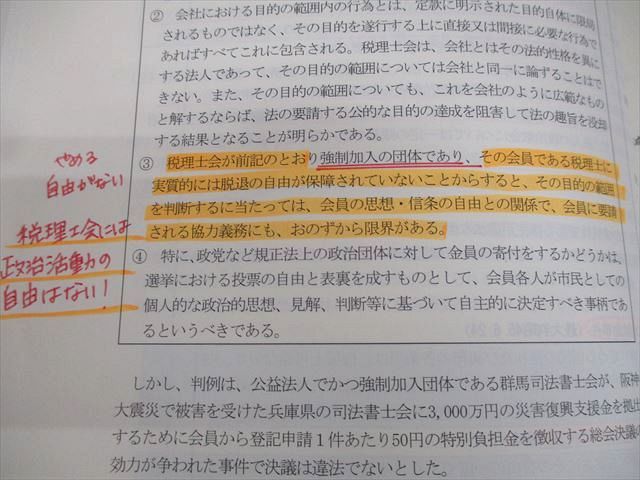 ② 会社における目的の範囲内の行為とは、定款に明示された目的自体に限局
されるものではなく、その目的を遂行する上に直接又は間接に必要な行為で
あればすべてこれに包含される。税理士会は、会社とはその法的性格を異に
する法人であって、その目的の範囲については会社と同一に論ずることはで
きない。また、その目的の範囲についても、これを会社のように広範なもの
と解するならば、法の要請する公的な目的の達成を阻害して法の趣旨を没却
する結果となることが明らかである。
③ 税理士会が前記のとおり強制加入の団体であり、その会員である税理士に
実質的には脱退の自由が保障されていないことからすると、その目的の範囲
を判断するに当たっては、会員の思想・信条の自由との関係で、会員に要請
される協力義務にも、おのずから限界がある。
④ 特に、政党など規正法上の政治団体に対して金員の寄付をするかどうかは、
選挙における投票の自由と表裏を成すものとして、会員各人が市民としての
個人的な政治的思想、見解、判断等に基づいて自主的に決定すべき事柄であ
るというべきである。
やめる
自由がない
税理士会には
政治活動の
自由はない!
しかし、判例は、公益法人でかつ強制加入団体である群馬司法書士会が、阪神
大震災で被害を受けた兵庫県の司法書士会に3,000万円の災害復興支援金を拠出
するために会員から登記申請1件あたり50円の特別負担金を徴収する総会決議の
効力が争われた事件で決議は違法でないとした。